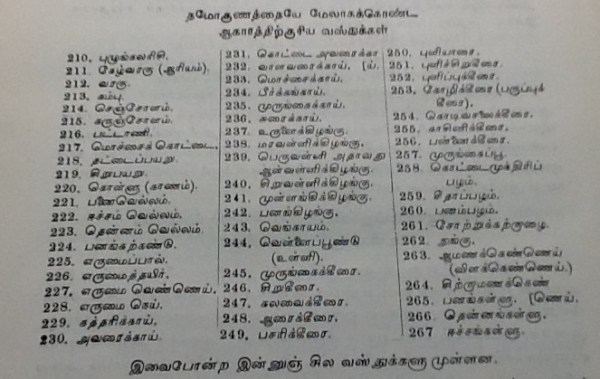 தமோகுணத்தையே மேலாகக்கொண்ட
ஆகாரத்திற்குரிய வஸ்துக்கள்
210. புழுங்கலரிசி.
211. கேழ்வரகு (ஆரியம்).
212. வரகு.
213. கம்பு.
214. செஞ்சோளம்.
215. கருஞ்சோளம்.
216. பட்டாணி.
217. மொச்சைக் கொட்டை,
218. தட்டைப்பயறு.
219. சிறுபயறு.
220. கொள்ளு (காணம்).
221. பனைவெல்லம்.
222. ஈச்சம் வெல்லம்.
223. தென்னம் வெல்லம்.
224. பனங்கற்கண்டு.
225. எருமைப்பால்.
226. எருமைத்தயிர்.
227. எருமை வெண்ணெய்,
228. எருமை நெய்.
229. கத்தரிக்காய்.
230. அவரைக்காய்.
231. கொட்டை அவரைக்கா
232. வாளவரைக்காய். [ய்.
233. மொச்சைக்காய்.
234. பீர்க்கங்காய்.
235. முருங்கைக்காய்.
236. சுரைக்காய்.
237. உருளைக்கிழங்கு.
238. மரவள்ளிக்கிழங்கு.
239. பெருவள்ளி அதாவது
ஆள்வள்ளிக்கிழங்கு.
240. சிறுவள்ளிக்கிழங்கு,
241. முள்ளங்கிக்கிழங்கு.
242. பனங்கிழங்கு,
243. வெங்காயம்.
244. வெள்ளைப்பூண்டு
(உள்ளி).
245. முருங்கைக்கீரை.
246. சிறுகீரை.
247. கலவைக்கீரை.
248. ஆரைக்கீரை.
249. பசரிக்கீரை.
250. புளியாரை.
251. புளிச்சிறுகீரை.
252. புளிப்புக்கீரை.
253. கோழிக்கீரை (பருப்புக்
கீரை).
254. கொடிவசலைக்கீரை.
255. காசினிக்கீரை.
256. பண்ணைக்கீரை.
257. முருங்கைப்பூ.
258. கொட்டைமுந்திரிப்
பழம்.
259. சீதாப்பழம்.
260. பனம்பழம்.
261. சோற்றுக்கற்றாழை.
262. நுங்கு.
263. ஆமணக்கெண்ணெய்
(விளக்கெண்ணெய்.)
264. சிற்றாமணக்கெண்
265. பனங்கள்ளு. [ணெய்.
266. தென்னங்கள்ளு.
267 ஈச்சங்கள்ளு.
இவைபோன்ற இன்னுஞ் சில வஸ்துக்களு முள்ளன.